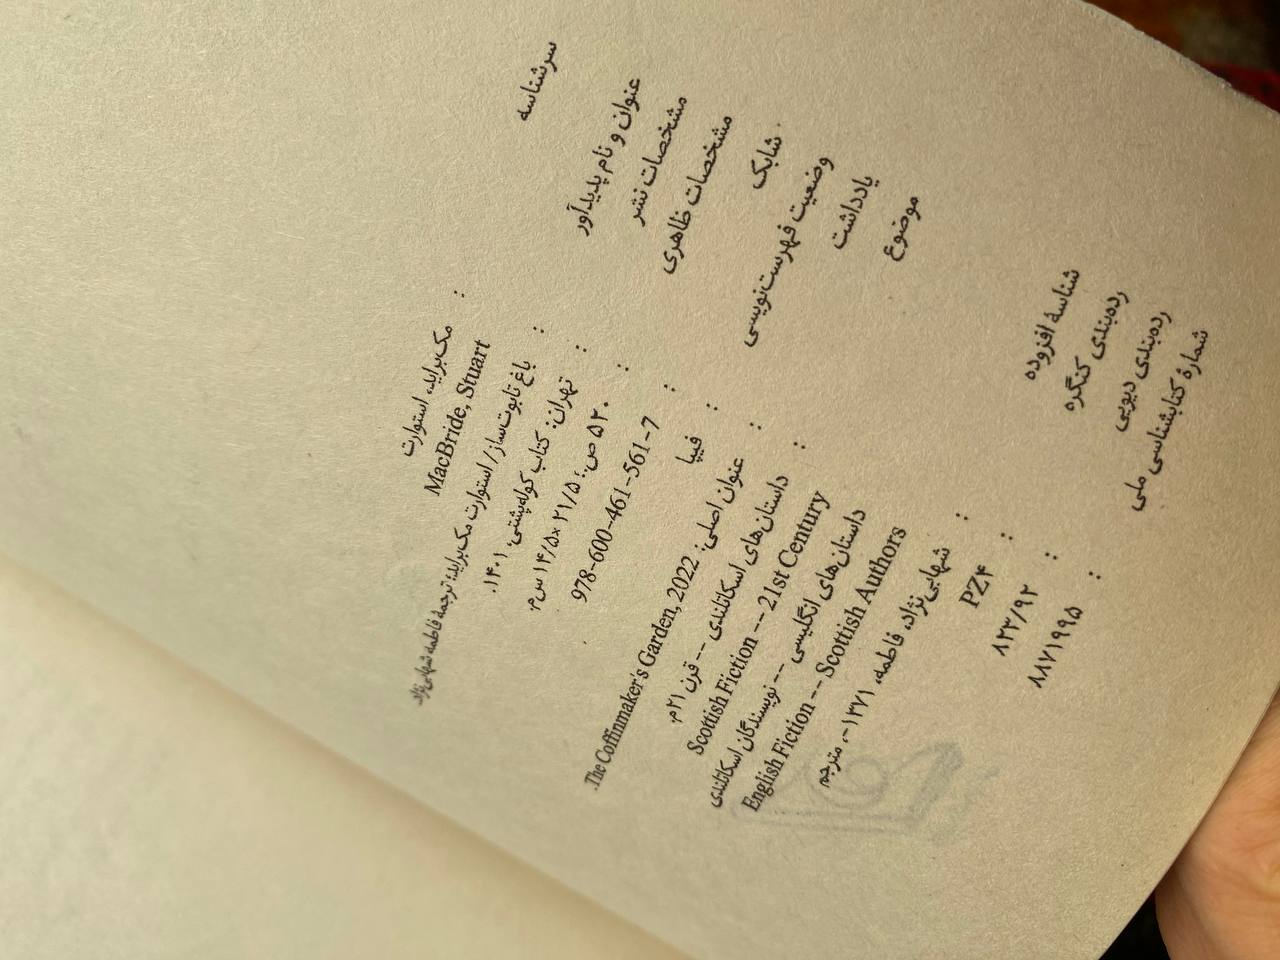 سرشناسه : مک‌براید، استوارت
MacBride, Stuart
عنوان و نام پدیدآور : باغ تابوت‌ساز/ استوارت مک‌براید؛ ترجمهٔ فاطمه شهابی‌نژاد
مشخصات نشر : تهران: کتاب کوله‌پشتی، ۱۴۰۱.
مشخصات ظاهری : ۵۲۰ ص؛ ۲۱/۵×۱۴/۵ س‌م.
شابک : 978-600-461-561-7
وضعیت فهرست‌نویسی : فیپا
یادداشت : عنوان اصلی: The Coffinmaker's Garden, 2022.
موضوع : داستان‌های اسکاتلندی -- قرن ۲۱م.
Scottish Fiction -- 21st Century
داستان‌های انگلیسی -- نویسندگان اسکاتلندی
English Fiction -- Scottish Authors
شناسهٔ افزوده : شهابی‌نژاد، فاطمه، ۱۳۷۱-، مترجم
رده‌بندی کنگره : PZ۴
رده‌بندی دیویی : ۸۲۳/۹۲
شمارهٔ کتابشناسی ملی : ۸۸۷۱۹۹۵